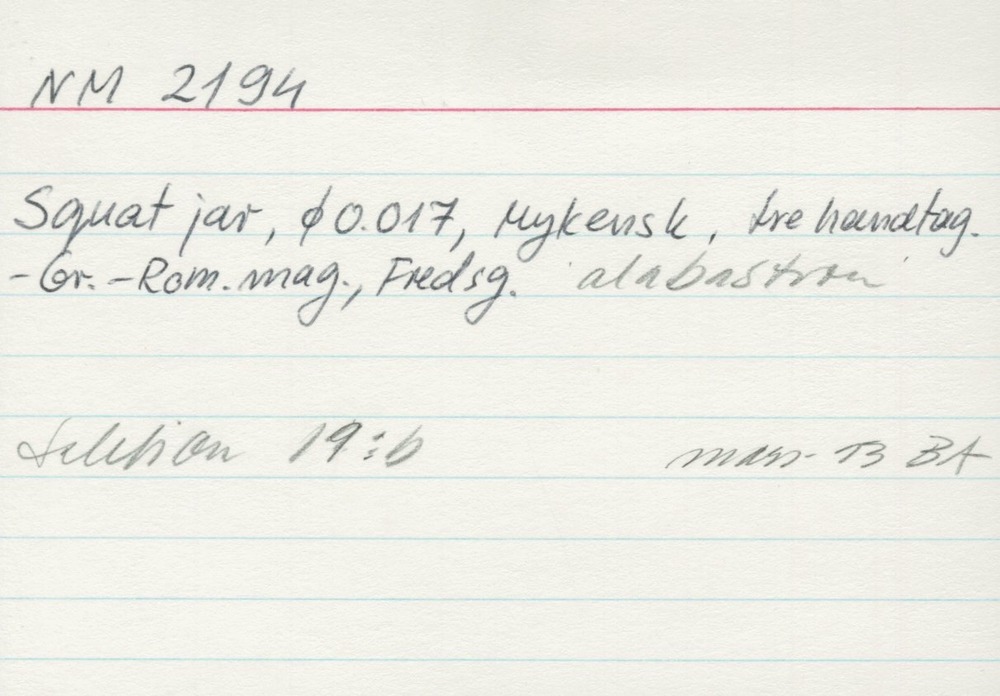 NM 2194
Squat jar, ϕ 0.017, Mykensk, tre handtag.
-Gr.-Rom. mag., Fredsg. alabastron
Sektion 19:6
mars- 73 BA